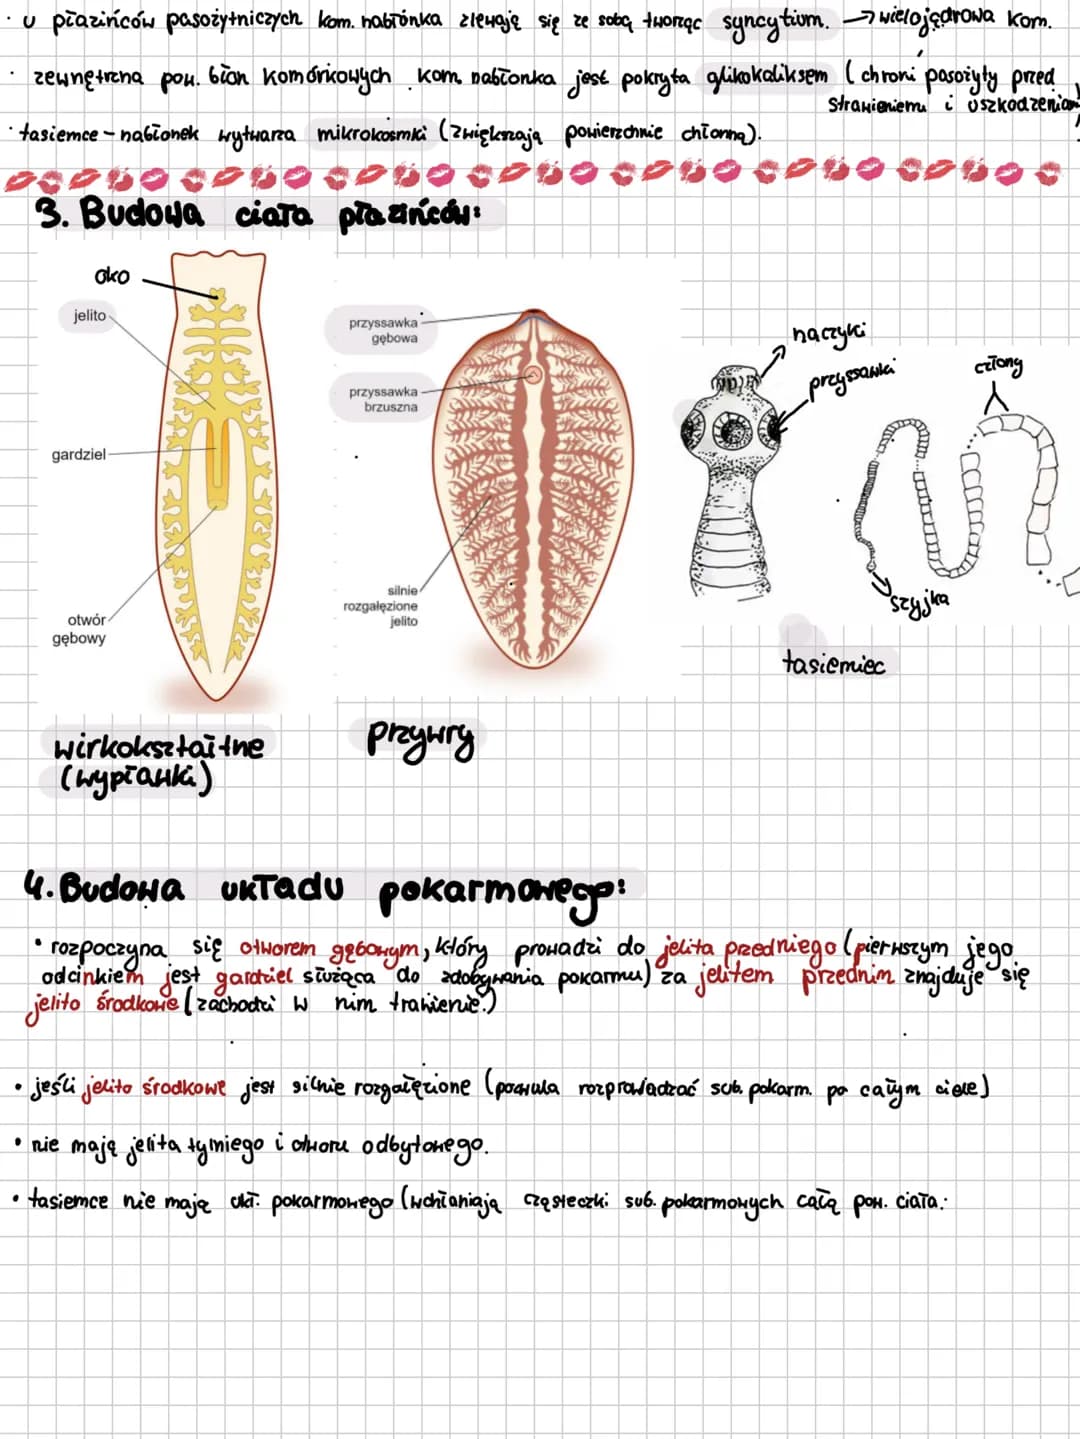 · u płazińców pasożytniczych kom. nabłonka zlewają się ze sobą tworząc syncytium. → wielojądrowa kom.
· zewnętrzna pow. błon komórkowych kom. nabłonka jest pokryta glikokaliksem (chroni pasożyty przed
strawieniem i uszkodzeniami)
· tasiemce - nabłonek wytwarza mikrokosmki (zwiększają powierzchnie chłonną).
3. Budowa ciała płazińców:
oko
jelito
gardziel
otwór
gębowy
wirkokształtne
(wypławki)
przyssawka
gębowa
przyssawka
brzuszna
silnie
rozgałęzione
jelito
przywry
haczyki
przyssawki
człony
szyjka
tasiemiec
4. Budowa układu pokarmowego:
• rozpoczyna się otworem gębowym, który prowadzi do jelita przedniego (pierwszym jego
odcinkiem jest gardziel służąca do zdobywania pokarmu) za jelitem przednim znajduje się
jelito środkowe (zachodzi w nim trawienie.)
• jeśli jelito środkowe jest silnie rozgałęzione (pozwula rozprowadzać sub. pokarm. po całym ciele)
• nie mają jelita tylniego i otworu odbytowego.
• tasiemce nie mają ukł. pokarmowego (wchłaniają cząsteczki sub. pokarmowych całą pow. ciała.